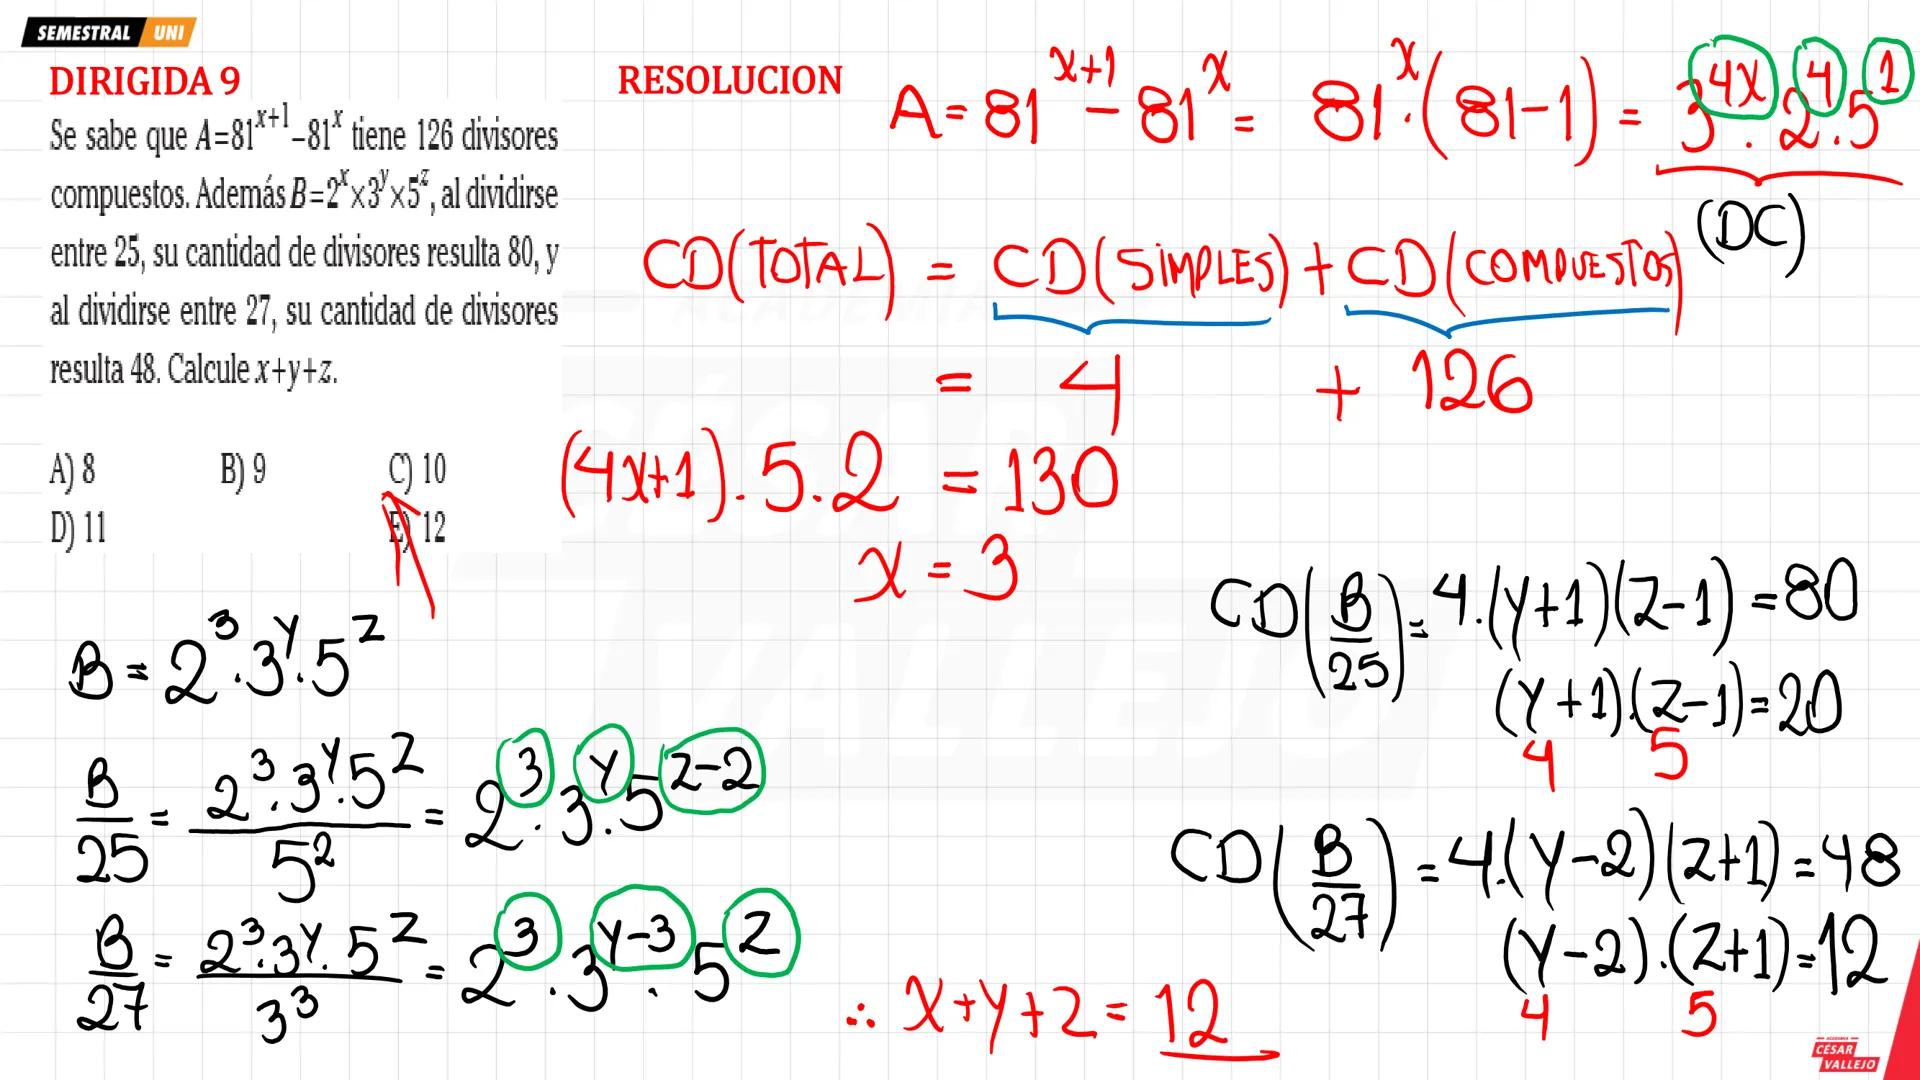 SEMESTRAL UNI
DIRIGIDA 9
Se sabe que A=81^{x+1}–81^x tiene 126 divisores
compuestos. Además B=2^x×3^y×5^z, al dividirse
entre 25, su cantidad de divisores resulta 80, y
al dividirse entre 27, su cantidad de divisores
resulta 48. Calcule x+y+z.
A) 8 B) 9 C) 10
D) 11 E) 12
RESOLUCION
A = 81^{x+1} – 81^x = 81^x · (81–1) = 3^{4x} · 2^4 · 5^1
(DC)
CD(TOTAL) = CD(SIMPLES) + CD(COMPUESTOS)
= 4 + 126
(4x+1) · 5 · 2 = 130
x = 3
B = 2^3 · 3^y · 5^z
B/25 = 2^3 · 3^y · 5^z / 5^2 = 2^3 · 3^y · 5^{z–2}
B/27 = 2^3 · 3^y · 5^z / 3^3 = 2^3 · 3^{y–3} · 5^z
CD(B/25) = 4·(y+1)(z–1) = 80
(y+1)·(z–1) = 20
4 5
CD(B/27) = 4·(y–2)(z+1) = 48
(y–2)·(z+1) = 12
4 5
∴ x+y+z = 12
ACADEMIA
CÉSAR
VALLEJO
ACADEMIA
CÉSAR
VALLEJO